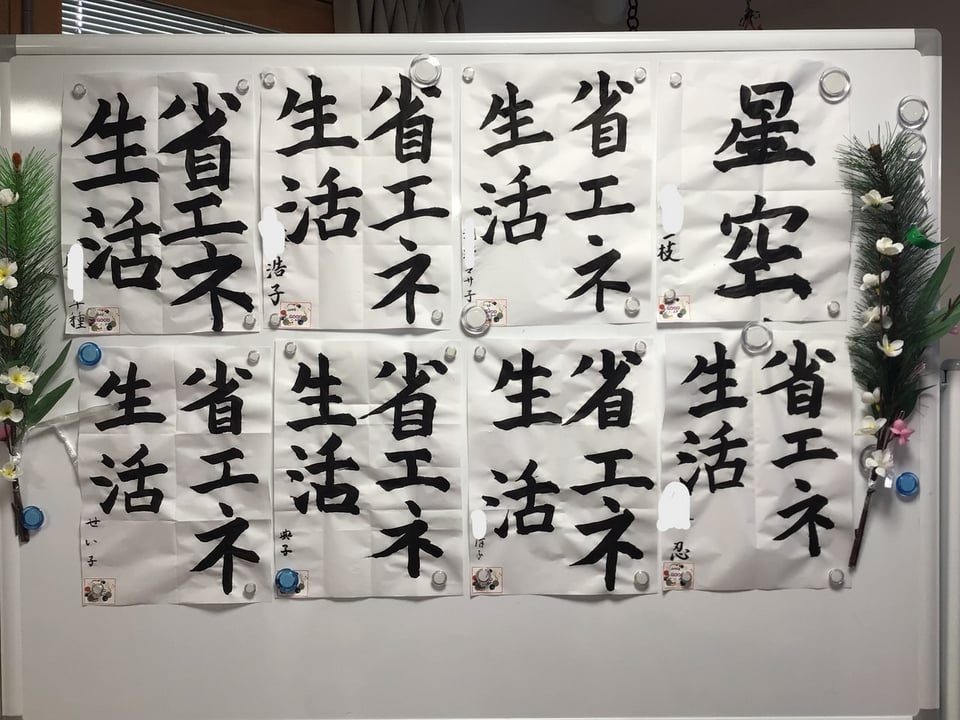 星空
枝
省エネ
生活
マサ子
省エネ
生活
浩子
省エネ
生活
種
省エネ
生活
忍
省エネ
生活
子
省エネ
生活
典子
省エネ
生活
せい子